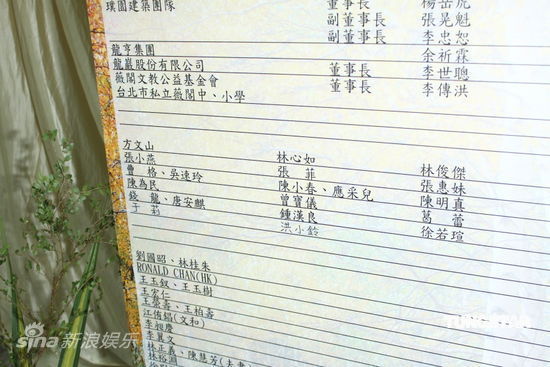 璞園建築團隊 董事長 楊岳虎
副董事長 張晃魁
副董事長 李忠恕
龍亨集團 余祈霖
龍巖股份有限公司 董事長 李世聰
薇閣文教公益基金會 董事長 李傳洪
台北市私立薇閣中、小學
方文山 林心如 林俊傑
張小燕 張 菲 張惠妹
曹 格、吳速玲 陳小春、應采兒 陳明真
陳為民 曾寶儀 葛 蕾
錢 龍、唐安麒 鍾漢良 徐若瑄
于 莉 洪小鈴
劉國昭、林桂朱
RONALD CHAN(HK)
王玉釵、王玉樹
王宏仁
王壽、王柏壽
江侑錩(文和)
李昶慶
李翼文
林正義、陳慧芳(夫
林裕淵
sina 新浪娱乐